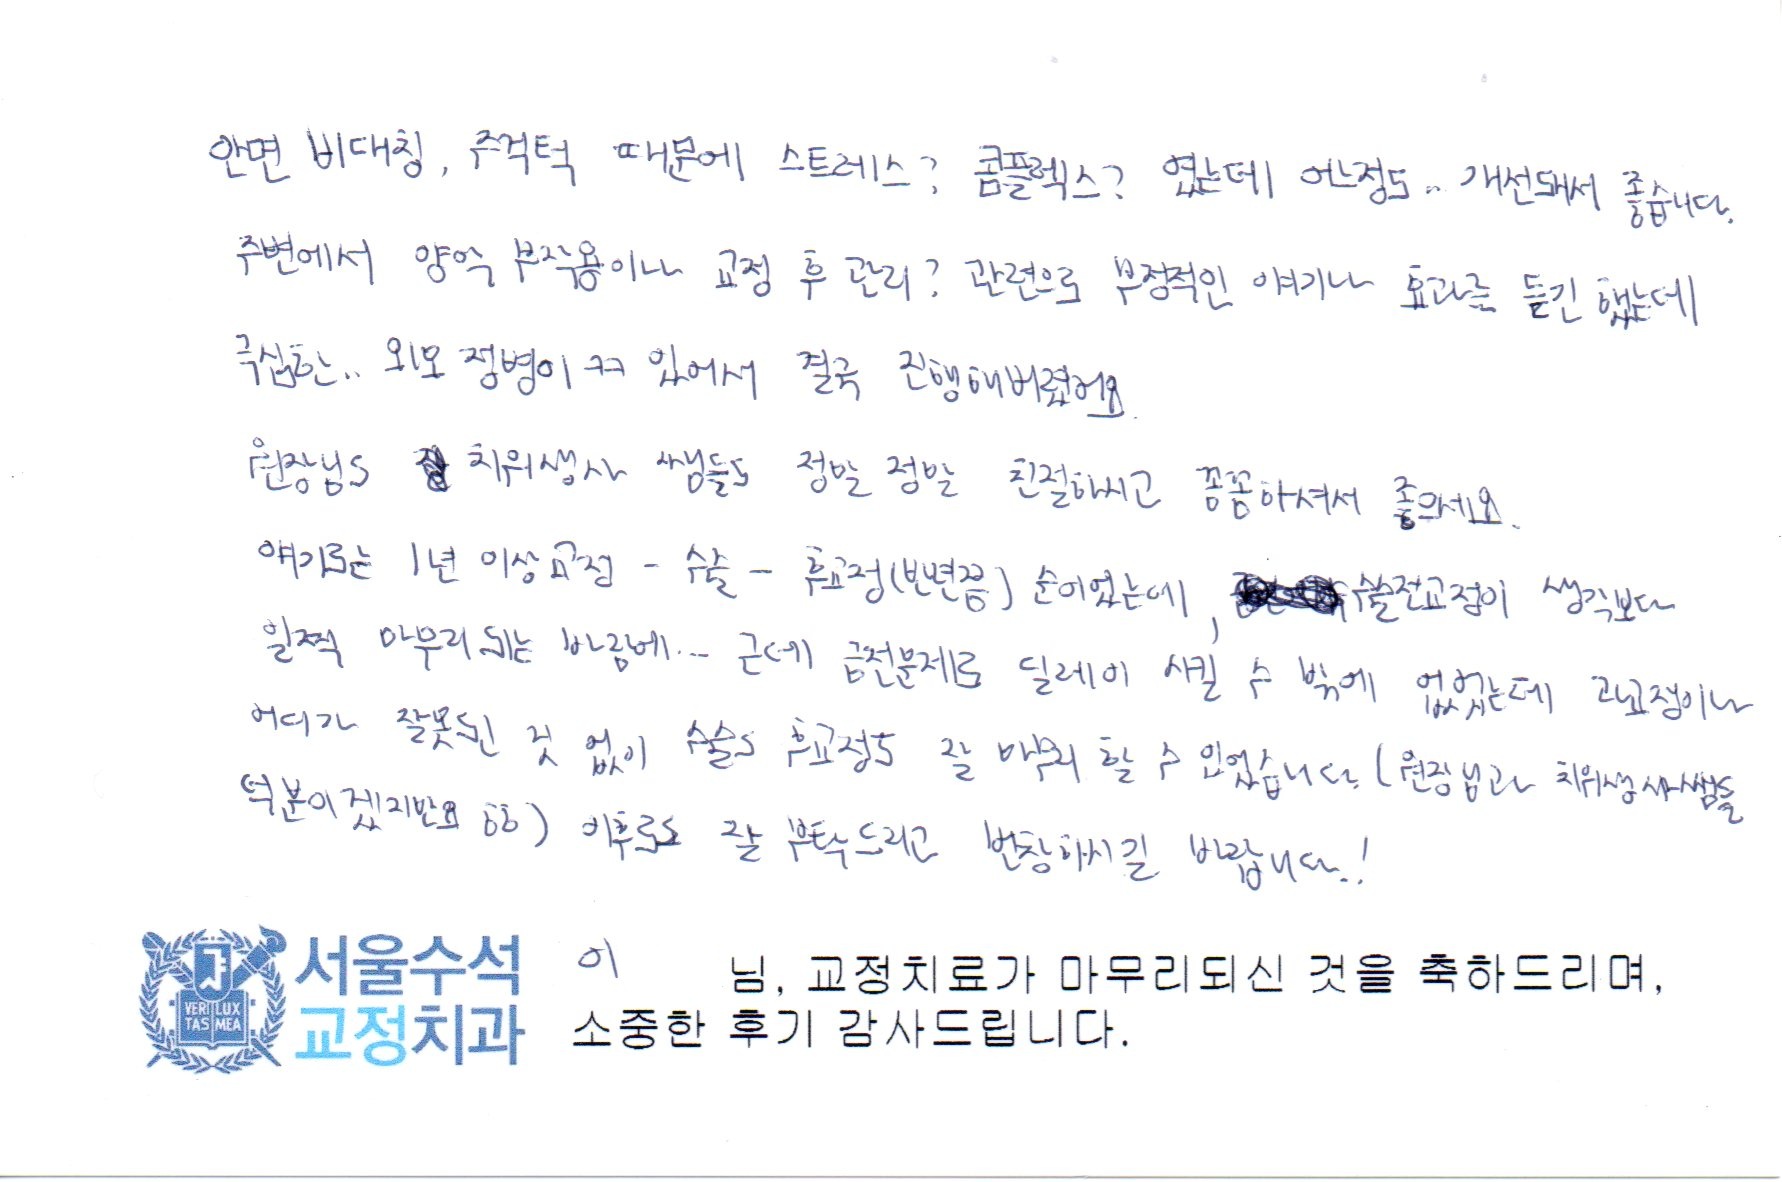 안면 비대칭, 주걱턱 때문에 스트레스? 콤플렉스? 였는데 어느정도.. 개선돼서 좋습니다.
주변에서 양악 부작용이나 교정 후 관리? 관련으로 부정적인 얘기나 효과를 듣긴 했는데
극심한.. 외모 정병이 ㅋㅋ 있어서 결국 진행해버렸어요.
원장님도 치위생사 쌤들도 정말 정말 친절하시고 꼼꼼하셔서 좋으세요.
얘기로는 1년 이상 교정 - 수술 - 후교정(반년쯤) 순이었는데, 수술전교정이 생각보다
일찍 마무리 되는 바람에... 근데 금전문제로 딜레이 시킬 수 밖에 없었는데 교정이나
어디가 잘못된 것 없이 수술도 후교정도 잘 마무리 할 수 있었습니다. (원장님과 치위생사쌤들
덕분이겠지만요 ㅎㅎ) 이후로도 잘 부탁드리고 번창하시길 바랍니다.!
서울수석
교정치과
VERI LUX
TAS MEA
이 님, 교정치료가 마무리되신 것을 축하드리며,
소중한 후기 감사드립니다.